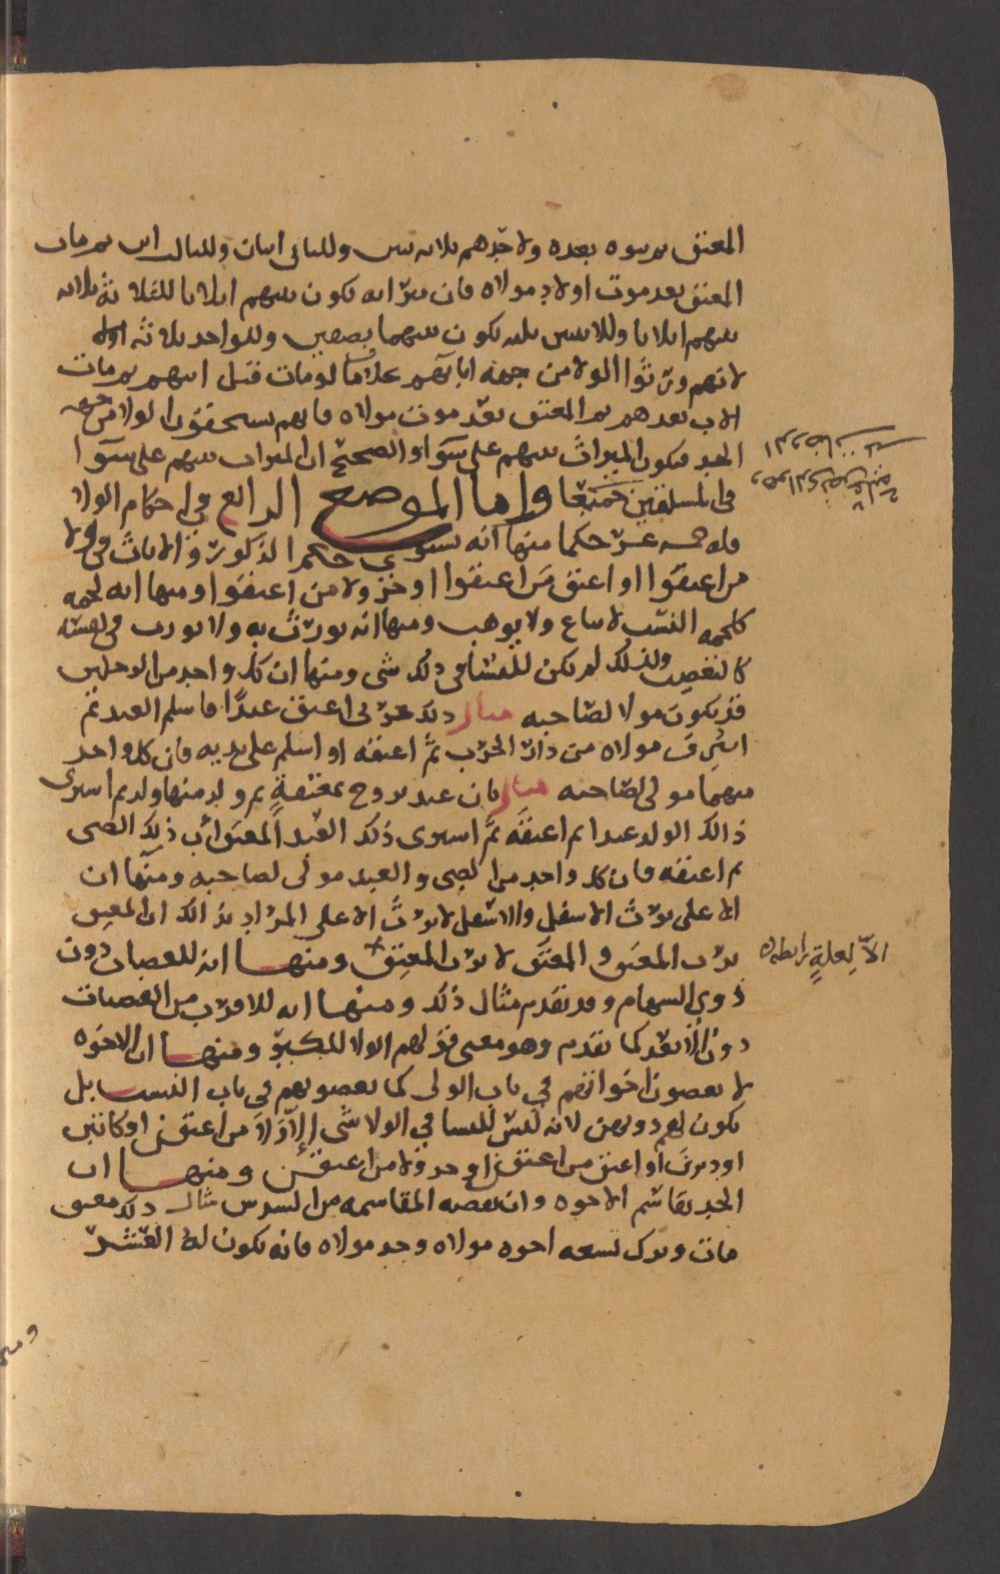 المعتق ثم بنوه بعده ولاحدهم ثلاثه بنين وللثاني ابنان وللثالث ابن ثم مات
المعتق بعد موت اولاد مولاه فان ميراثه يكون بينهم اثلاثا للثلاثة ثلاثه
بينهم اثلاثا وللاثنين ثلثه يكون بينهما نصفين وللواحد ثلاثه اولا
لانهم ورثوا الولا من جهة ابائهم علاما لو مات قبل ابيهم ثم مات
الاب بعدهم ثم المعتق بعد موت مولاه فانهم يستحقون الولا من جهه
الجد فيكون الميراث بينهم على سوا والصحيح ان الميراث بينهم على سوا
في المسلتين جميعا واما الموضع الرابع في احكام الولا
فله خمسه عشر حكما منها انه يستوي حكم الذكور والاناث في ولا
من اعتقوا او اعتق من اعتقوا او جر ولا من اعتقوا ومنها انه لحمه
كلحمه النسب لا يباع ولا يوهب ومنها انه يورث به ولا يورث في نفسه
كالتعصيب ولذلك لم يكن للنسا في ذلك شي ومنها ان كل واحد من الرجلين
قد يكون مولا لصاحبه مثال ذلك حربي اعتق عبدا فاسلم العبد ثم
اشترى مولاه من دار الحرب ثم اعتقه او اسلم على يديه فان كل واحد
منهما مولى لصاحبه مثال ثان عبد تزوج بمعتقة ثم ولد منها ولد ثم اشترى
ذالك الولد عبدا ثم اعتقه ثم اشترى ذلك العبد المعتق اب ذلك الصبي
ثم اعتقه فان كل واحد من الصبي والعبد مولى لصاحبه ومنها ان
الاعلى يرث الاسفل والاسفل لا يرث الاعلى المراد بذالك ان المعتق
يرث المعتق والمعتق لا يرث المعتق ومنها انه للعصبات دون
ذوي السهام وقد تقدم مثال ذلك ومنها انه للاقرب من العصبات
دون الابعد كما تقدم وهو معنى قولهم الولا للكبر ومنها ان الاخوه
لا يعصبون اخواتهم في باب الولى كما يعصبونهم في باب النسب بل
يكون لهم دونهن لانه ليس للنسا في الولا شي إلا ولا من اعتقن او كاتبن
او دبرن او اعتق من اعتقن او جر ولا من اعتقن ومنها ان
الجد يقاسم الاخوه وان نقصه المقاسمه من السدس مثال ذلك معتق
مات وترك تسعه اخوه مولاه وجد مولاه فانه يكون له العشر
الا لعلة رابطه